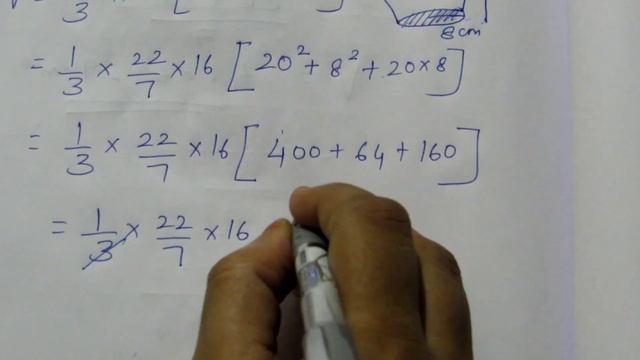 3
8 cm
= 1/3 × 22/7 × 16 [20² + 8² + 20×8]
= 1/3 × 22/7 × 16 [400 + 64 + 160]
= 1/3 × 22/7 × 16